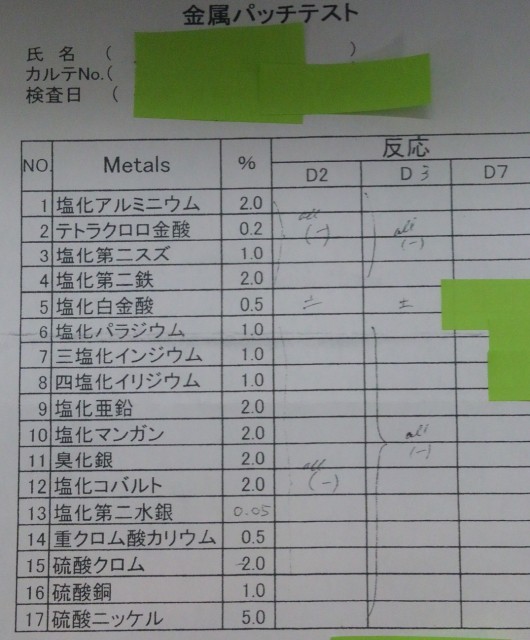 金属パッチテスト
氏 名 ( )
カルテNo.(
検査日 (
NO. Metals % 反応
D2 D3 D7
1 塩化アルミニウム 2.0
2 テトラクロロ金酸 0.2 all (-) all (-)
3 塩化第二スズ 1.0
4 塩化第二鉄 2.0
5 塩化白金酸 0.5 ± ±
6 塩化パラジウム 1.0
7 三塩化インジウム 1.0
8 四塩化イリジウム 1.0
9 塩化亜鉛 2.0
10 塩化マンガン 2.0 all (-)
11 臭化銀 2.0
12 塩化コバルト 2.0 all (-)
13 塩化第二水銀 0.05
14 重クロム酸カリウム 0.5
15 硫酸クロム 2.0
16 硫酸銅 1.0
17 硫酸ニッケル 5.0